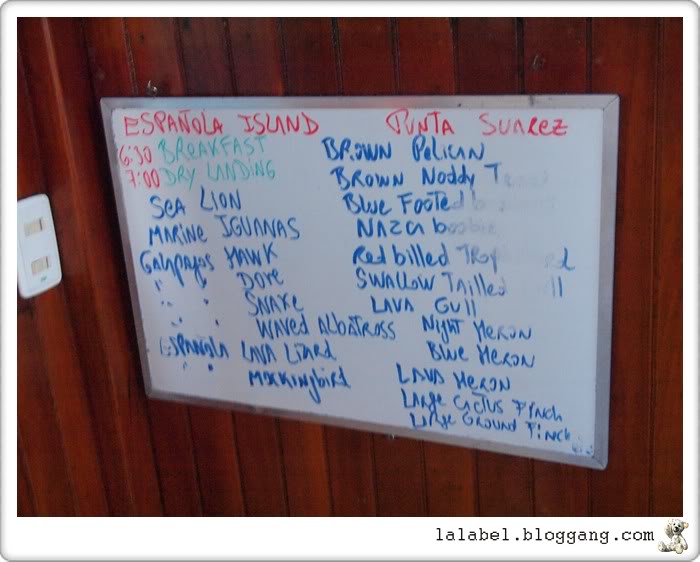 ESPAÑOLA ISLAND
6:30 BREAKFAST
7:00 DRY LANDING
SEA LION
MARINE IGUANAS
GALAPAGOS HAWK
" " DOVE
" " SNAKE
" " WAVED ALBATROSS
ESPAÑOLA LAVA LIZARD
" " MOCKINGBIRD
PUNTA SUAREZ
BROWN PELICAN
BROWN NODDY
BLUE FOOTED
NAZCA boobies
Red billed
SWALLOW TAILLED
LAVA GULL
Night HERON
BLUE HERON
LAVA HERON
LARGE CACTUS FYNCH
LARGE GROUND FINCH
lalabel.bloggang.com